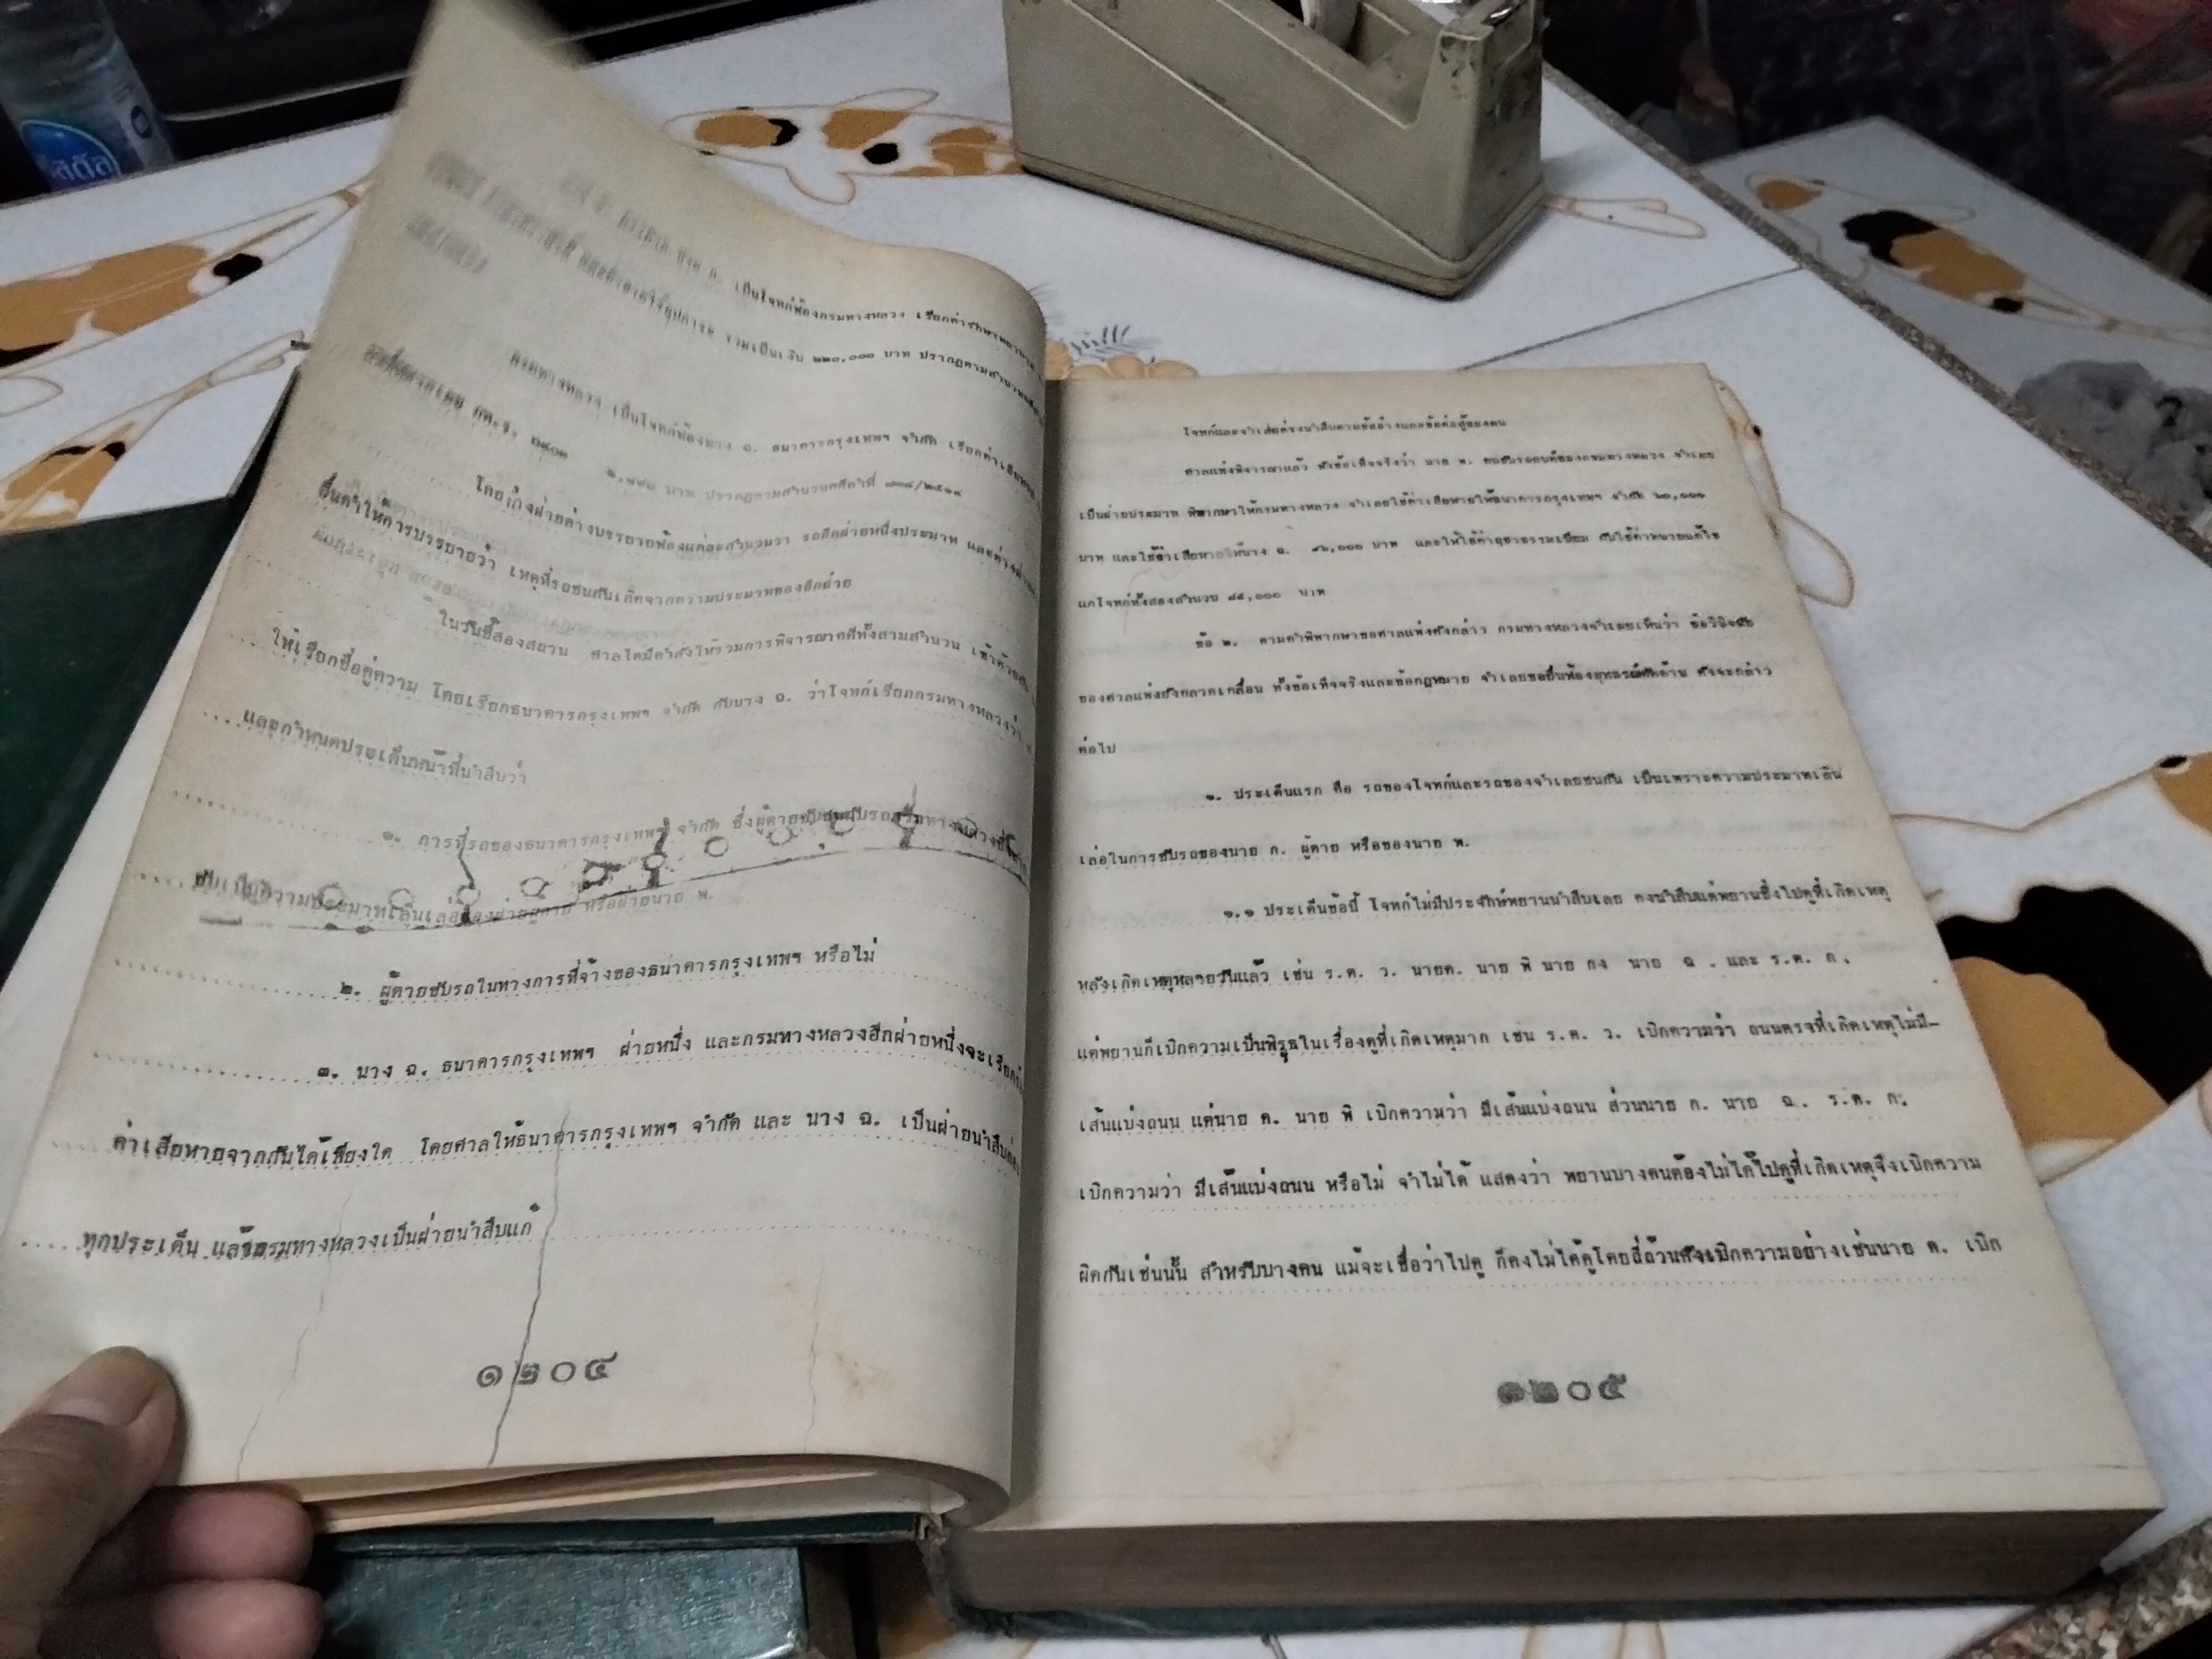 สิตัล
เป็นโจทก์ฟ้องกรมทางหลวง เรียกค่ารักษาพยาบาล
รวมเป็นเงิน ๒๒๐,๐๐๐ บาท ปรากฏตามสำนวนคดี
กรมทางหลวง เป็นโจทก์ฟ้องนาง ฉ. ธนาคารกรุงเทพฯ จำกัด เรียกค่าเสียหาย
บาท ปรากฏตามสำนวนคดีดำที่
โดยทั้งฝ่ายต่างบรรยายฟ้องแต่ละสำนวนว่า รถอีกฝ่ายหนึ่งประมาท และต่างฝ่าย
ยื่นคำให้การบรรยายว่า เหตุที่รถชนกันเกิดจากความประมาทของอีกฝ่าย
ในวันชี้สองสถาน ศาลได้มีคำสั่งให้รวมการพิจารณาคดีทั้งสามสำนวน เข้าด้วยกัน
ให้เรียกชื่อคู่ความ โดยเรียกธนาคารกรุงเทพฯ จำกัด กับนาง ฉ. ว่าโจทก์เรียกกรมทางหลวงว่า
และกำหนดประเด็นหน้าที่นำสืบว่า
๑. การที่รถของธนาคารกรุงเทพฯ จำกัด ซึ่งผู้ตายขับชนกับรถกรมทางหลวงซึ่ง
ขับเป็นความประมาทเลินเล่อของฝ่ายผู้ตาย หรือฝ่ายนาย พ.
๒. ผู้ตายขับรถในทางการที่จ้างของธนาคารกรุงเทพฯ หรือไม่
๓. นาง ฉ. ธนาคารกรุงเทพฯ ฝ่ายหนึ่ง และกรมทางหลวงอีกฝ่ายหนึ่งจะเรียกร้อง
ค่าเสียหายจากกันได้เพียงใด โดยศาลให้ธนาคารกรุงเทพฯ จำกัด และ นาง ฉ. เป็นฝ่ายนำสืบก่อน
ทุกประเด็น แล้วกรมทางหลวงเป็นฝ่ายนำสืบแก้
๑๒๐๔
โจทก์และจำเลยต่างนำสืบตามข้ออ้างและข้อต่อสู้ของตน
ศาลแพ่งพิจารณาแล้ว ฟังข้อเท็จจริงว่า นาย พ. คนขับรถยนต์ของกรมทางหลวง จำเลย
เป็นฝ่ายประมาท พิพากษาให้กรมทางหลวง จำเลยใช้ค่าเสียหายให้ธนาคารกรุงเทพฯ จำกัด ๒๓,๐๐๐
บาท และใช้ค่าเสียหายให้นาง ฉ. ๘๖,๐๐๐ บาท และให้ใช้ค่าฤชาธรรมเนียม กับใช้ค่าทนายแก้ไข
แก่โจทก์ทั้งสองสำนวน ๘๕,๐๐๐ บาท
ข้อ ๒. ตามคำพิพากษาขอศาลแพ่งดังกล่าว กรมทางหลวงจำเลยเห็นว่า ข้อวินิจฉัย
ของศาลแพ่งยังคลาดเคลื่อน ทั้งข้อเท็จจริงและข้อกฎหมาย จำเลยขอยื่นฟ้องอุทธรณ์คัดค้าน ดังจะกล่าว
ต่อไป
๑. ประเด็นแรก คือ รถของโจทก์และรถของจำเลยชนกัน เป็นเพราะความประมาทเลิน
เล่อในการขับรถของนาย ก. ผู้ตาย หรือของนาย พ.
๑.๑ ประเด็นข้อนี้ โจทก์ไม่มีประจักษ์พยานนำสืบเลย คงนำสืบแต่พยานซึ่งไปดูที่เกิดเหตุ
หลังเกิดเหตุหลายวันแล้ว เช่น ร.ต. ว. นายด. นาย พิ นาย กง นาย ฉ. และ ร.ต. ก.
แต่พยานก็เบิกความเป็นพิรุธในเรื่องดูที่เกิดเหตุมาก เช่น ร.ต. ว. เบิกความว่า ถนนตรงที่เกิดเหตุไม่มี-
เส้นแบ่งถนน แต่นาย ด. นาย พิ เบิกความว่า มีเส้นแบ่งถนน ส่วนนาย ก. นาย ฉ. ร.ต. ก.
เบิกความว่า มีเส้นแบ่งถนน หรือไม่ จำไม่ได้ แสดงว่า พยานบางคนต้องไม่ได้ไปดูที่เกิดเหตุจึงเบิกความ
ผิดกันเช่นนั้น สำหรับบางคน แม้จะเชื่อว่าไปดู ก็คงไม่ได้ดูโดยถี่ถ้วนดังเบิกความอย่างเช่นนาย ด. เบิก
๑๒๐๕